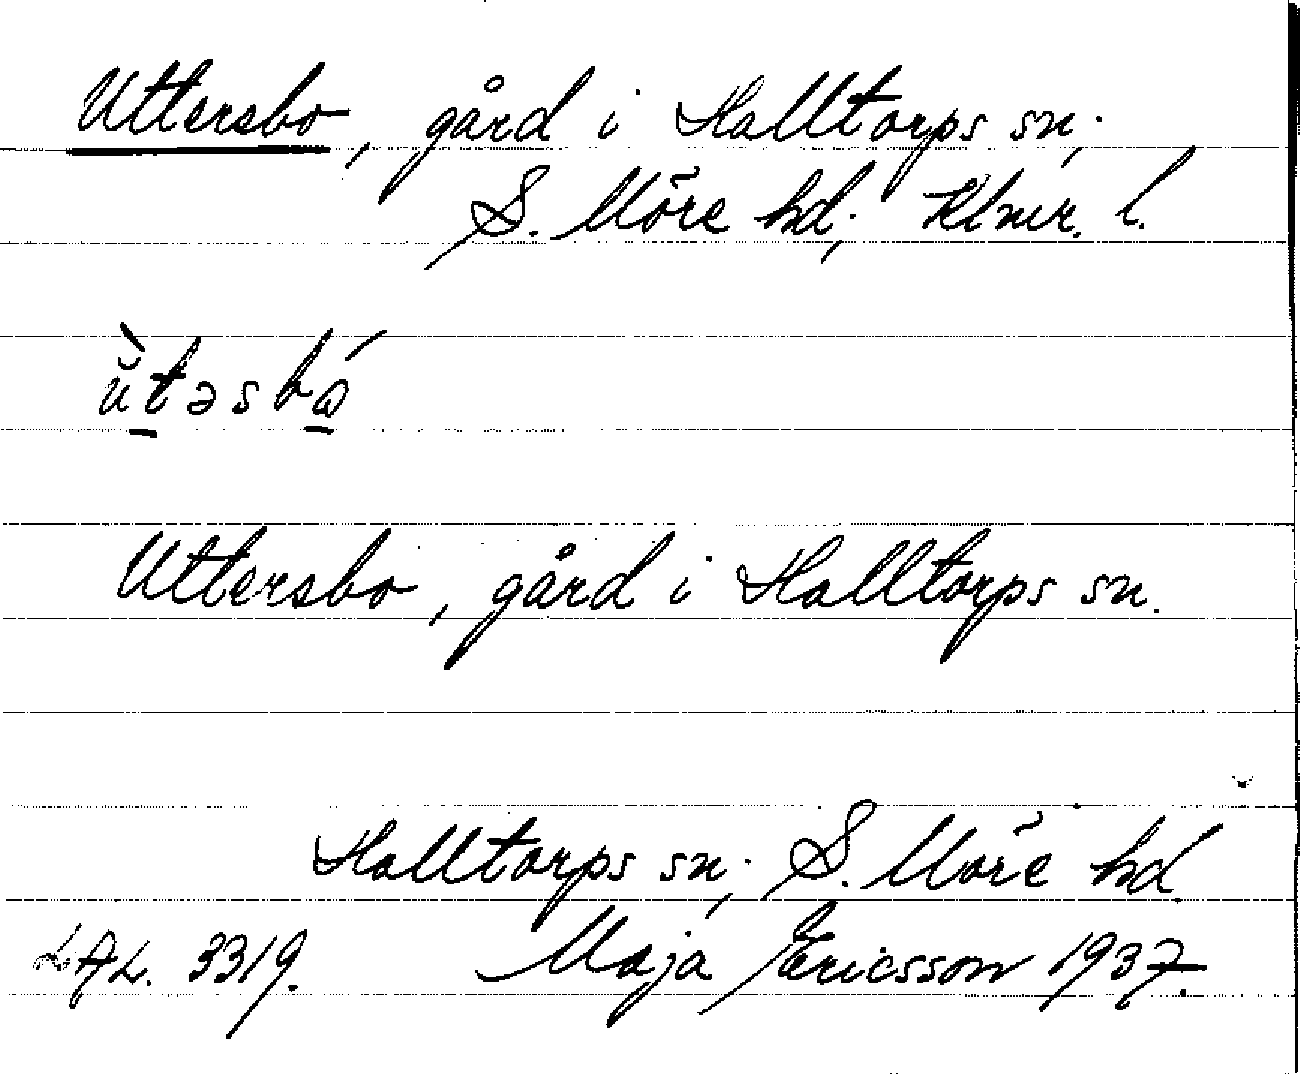 Uttersbo, gård i Halltorps sn.,
S. Möre hd., Klmr. l.
ùtəsbó
Uttersbo, gård i Halltorps sn.
Halltorps sn., S. Möre hd.
LAL. 3319. Maja Ericsson 1937.